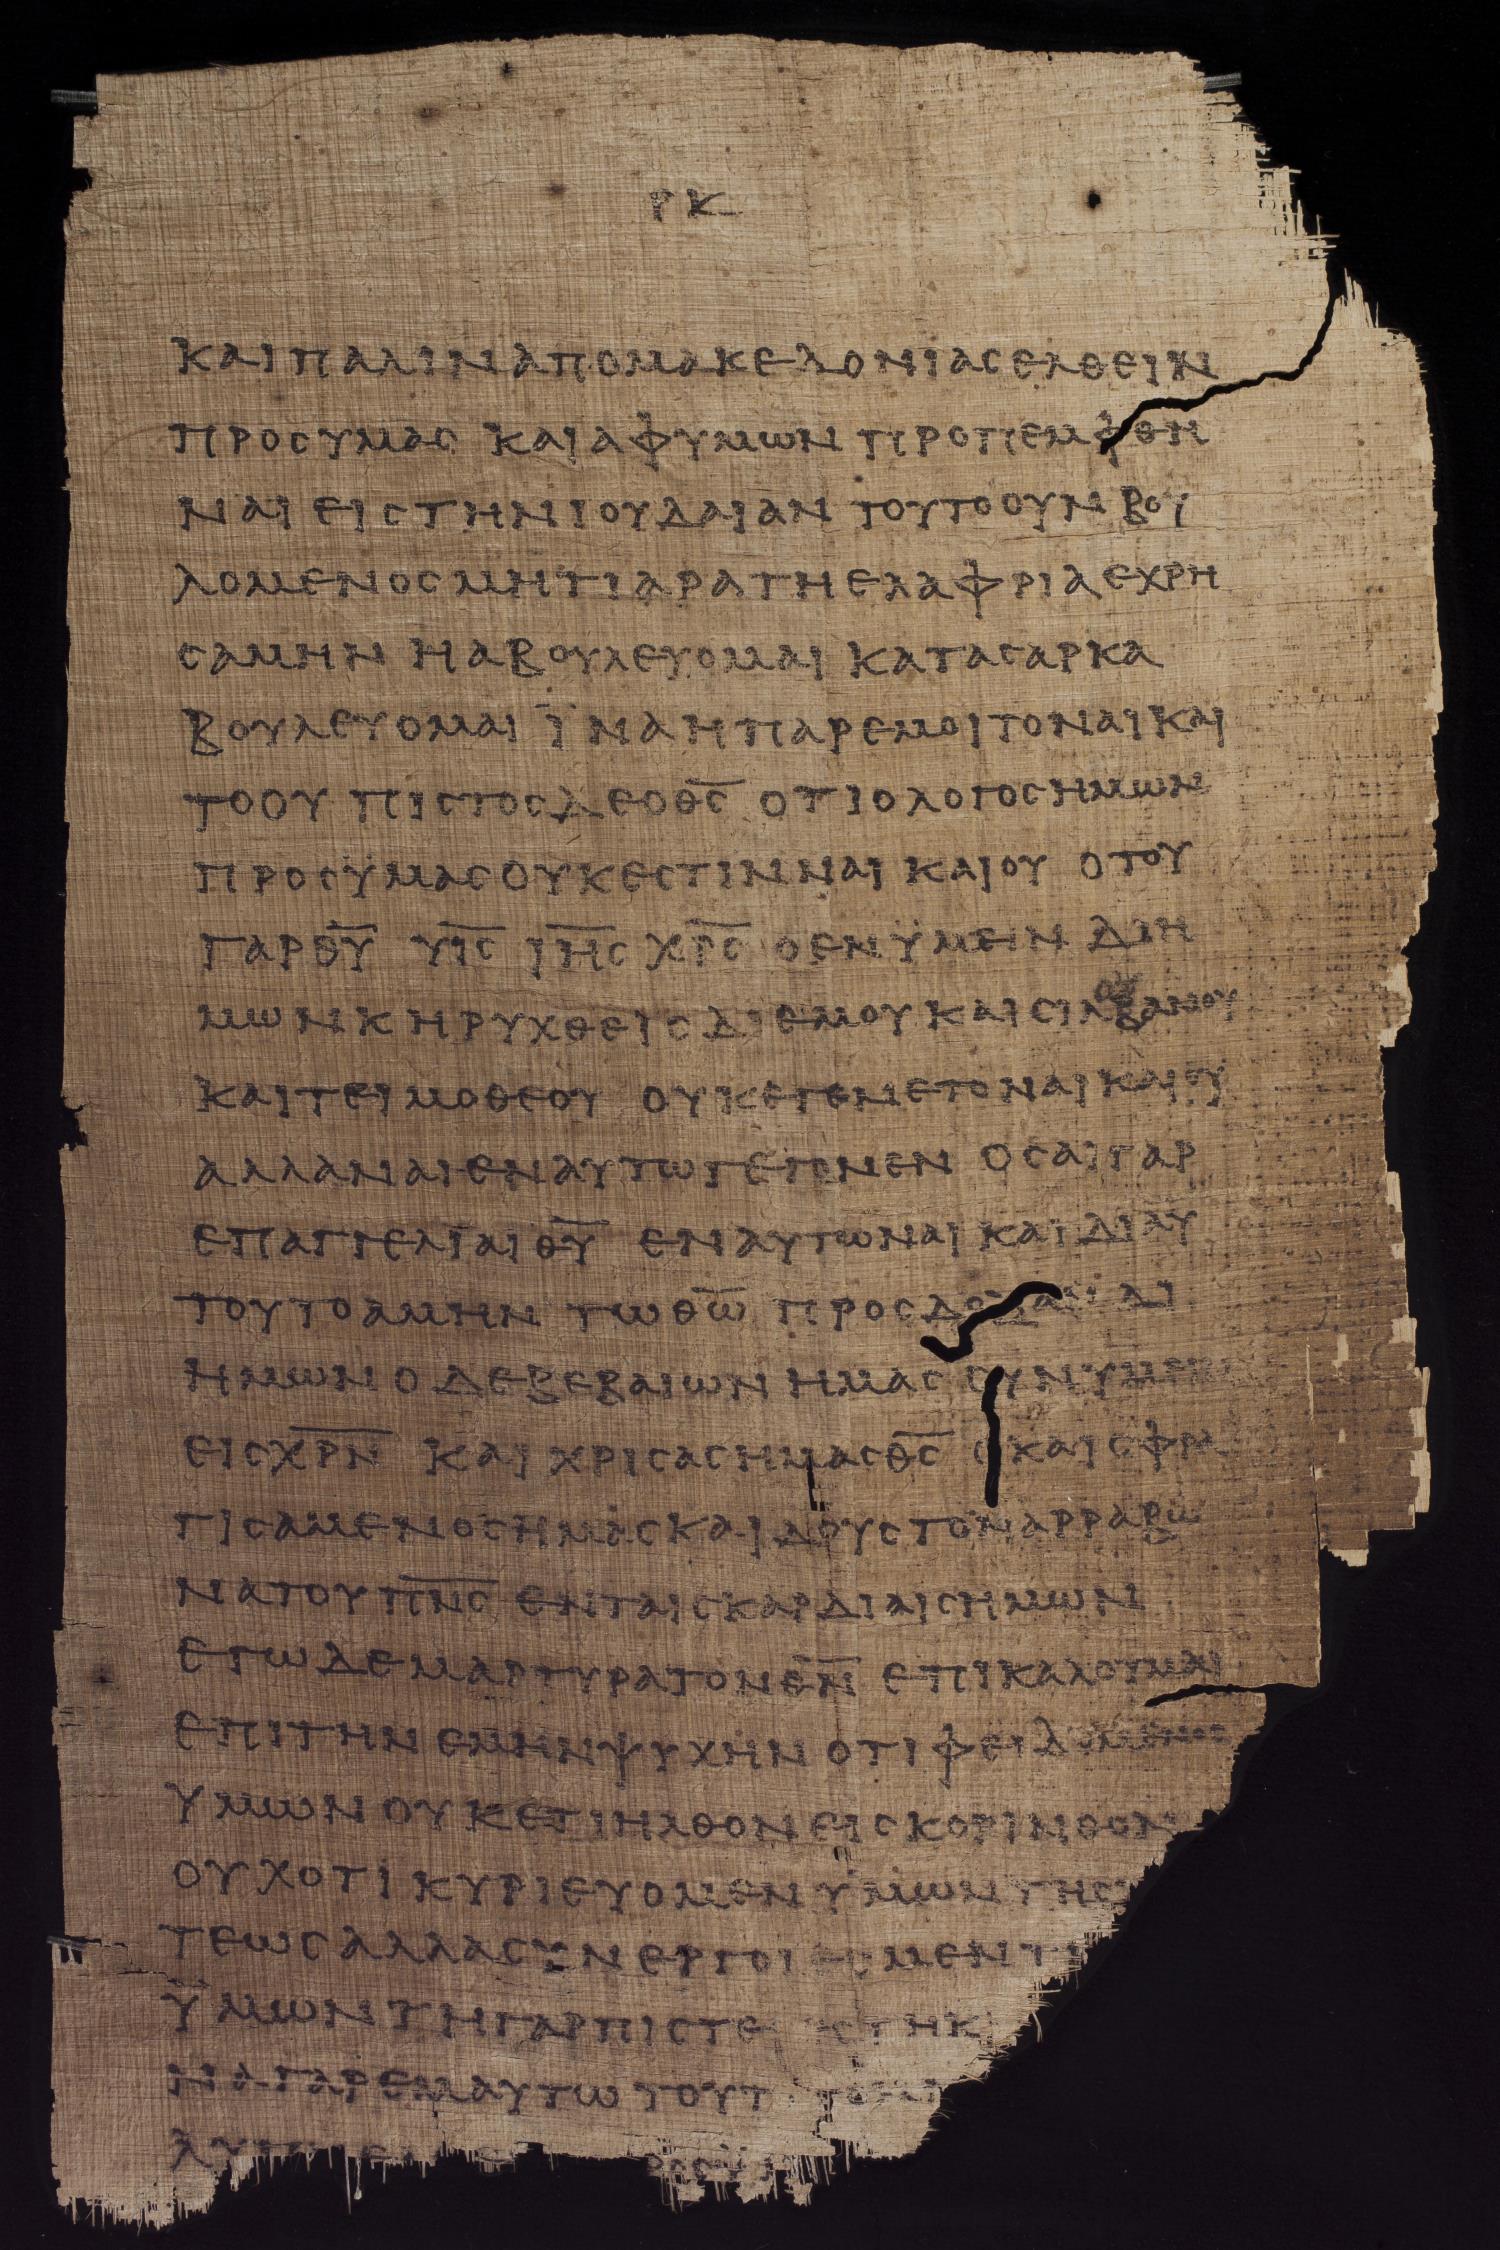 ΡΚ
ΚΑΙ ΠΑΛΙΝ ΑΠΟ ΜΑΚΕΔΟΝΙΑΣ ΕΛΘΕΙΝ
ΠΡΟΣ ΥΜΑΣ ΚΑΙ ΑΦ ΥΜΩΝ ΠΡΟΠΕΜΦΘΗ
ΝΑΙ ΕΙΣ ΤΗΝ ΙΟΥΔΑΙΑΝ ΤΟΥΤΟ ΟΥΝ ΒΟΥ
ΛΟΜΕΝΟΣ ΜΗΤΙ ΑΡΑ ΤΗ ΕΛΑΦΡΙΑ ΕΧΡΗ
ΣΑΜΗΝ Η Α ΒΟΥΛΕΥΟΜΑΙ ΚΑΤΑ ΣΑΡΚΑ
ΒΟΥΛΕΥΟΜΑΙ ΪΝΑ Η ΠΑΡ ΕΜΟΙ ΤΟ ΝΑΙ ΚΑΙ
ΤΟ ΟΥ ΠΙΣΤΟΣ ΔΕ Ο Θ̅Σ̅ ΟΤΙ Ο ΛΟΓΟΣ ΗΜΩΝ
ΠΡΟΣ ΫΜΑΣ ΟΥΚ ΕΣΤΙΝ ΝΑΙ ΚΑΙ ΟΥ Ο ΤΟΥ
ΓΑΡ Θ̅Υ̅ Υ̅Ι̅Σ̅ Ι̅Η̅Σ̅ Χ̅Ρ̅Σ̅ Ο ΕΝ ΫΜΕΙΝ ΔΙ Η
ΜΩΝ ΚΗΡΥΧΘΕΙΣ ΔΙ ΕΜΟΥ ΚΑΙ ΣΙΛΒΑΝΟΥ
ΚΑΙ ΤΕΙΜΟΘΕΟΥ ΟΥΚ ΕΓΕΝΕΤΟ ΝΑΙ ΚΑΙ ΟΥ
ΑΛΛΑ ΝΑΙ ΕΝ ΑΥΤΩ ΓΕΓΟΝΕΝ ΟΣΑΙ ΓΑΡ
ΕΠΑΓΓΕΛΙΑΙ Θ̅Υ̅ ΕΝ ΑΥΤΩ ΝΑΙ ΚΑΙ ΔΙ ΑΥ
ΤΟΥ ΤΟ ΑΜΗΝ ΤΩ Θ̅Ω̅ ΠΡΟΣ ΔΟΞΑΝ ΔΙ
ΗΜΩΝ Ο ΔΕ ΒΕΒΑΙΩΝ ΗΜΑΣ ΣΥΝ ΥΜΕΙΝ
ΕΙΣ Χ̅Ρ̅Ν̅ ΚΑΙ ΧΡΙΣΑΣ ΗΜΑΣ Θ̅Σ̅ Ο ΚΑΙ ΣΦΡΑ
ΓΙΣΑΜΕΝΟΣ ΗΜΑΣ ΚΑΙ ΔΟΥΣ ΤΟΝ ΑΡΡΑΒΩ
ΝΑ ΤΟΥ Π̅Ν̅Σ̅ ΕΝ ΤΑΙΣ ΚΑΡΔΙΑΙΣ ΗΜΩΝ
ΕΓΩ ΔΕ ΜΑΡΤΥΡΑ ΤΟΝ Θ̅Ν̅ ΕΠΙΚΑΛΟΥΜΑΙ
ΕΠΙ ΤΗΝ ΕΜΗΝ ΨΥΧΗΝ ΟΤΙ ΦΕΙΔΟΜΕΝΟΣ
ΥΜΩΝ ΟΥΚΕΤΙ ΗΛΘΟΝ ΕΙΣ ΚΟΡΙΝΘΟΝ
ΟΥΧ ΟΤΙ ΚΥΡΙΕΥΟΜΕΝ ΫΜΩΝ ΤΗΣ
ΤΕΩΣ ΑΛΛΑ ΣΥΝΕΡΓΟΙ ΕΣΜΕΝ
ΫΜΩΝ ΤΗ ΓΑΡ ΠΙΣΤΕΙ ΕΣΤΗΚ
ΝΑ ΓΑΡ ΕΜΑΥΤΩ ΤΟΥΤ
ΛΥΠ